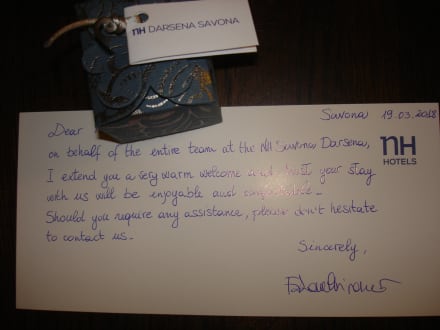 nH DARSENA SAVONA
Savona 19.03.2018
nH
HOTELS
Dear
on behalf of the entire team at the NH Savona Darsena,
I extend you a very warm welcome and trust your stay
with us will be enjoyable and comfortable.
Should you require any assistance, please don't hesitate
to contact us.
Sincerely,